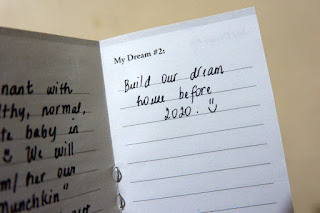 nant with
lthy, normal,
te baby in
We will
m/ her our
munchkin"
My Dream #2:
Build our dream
home before
2020. :)